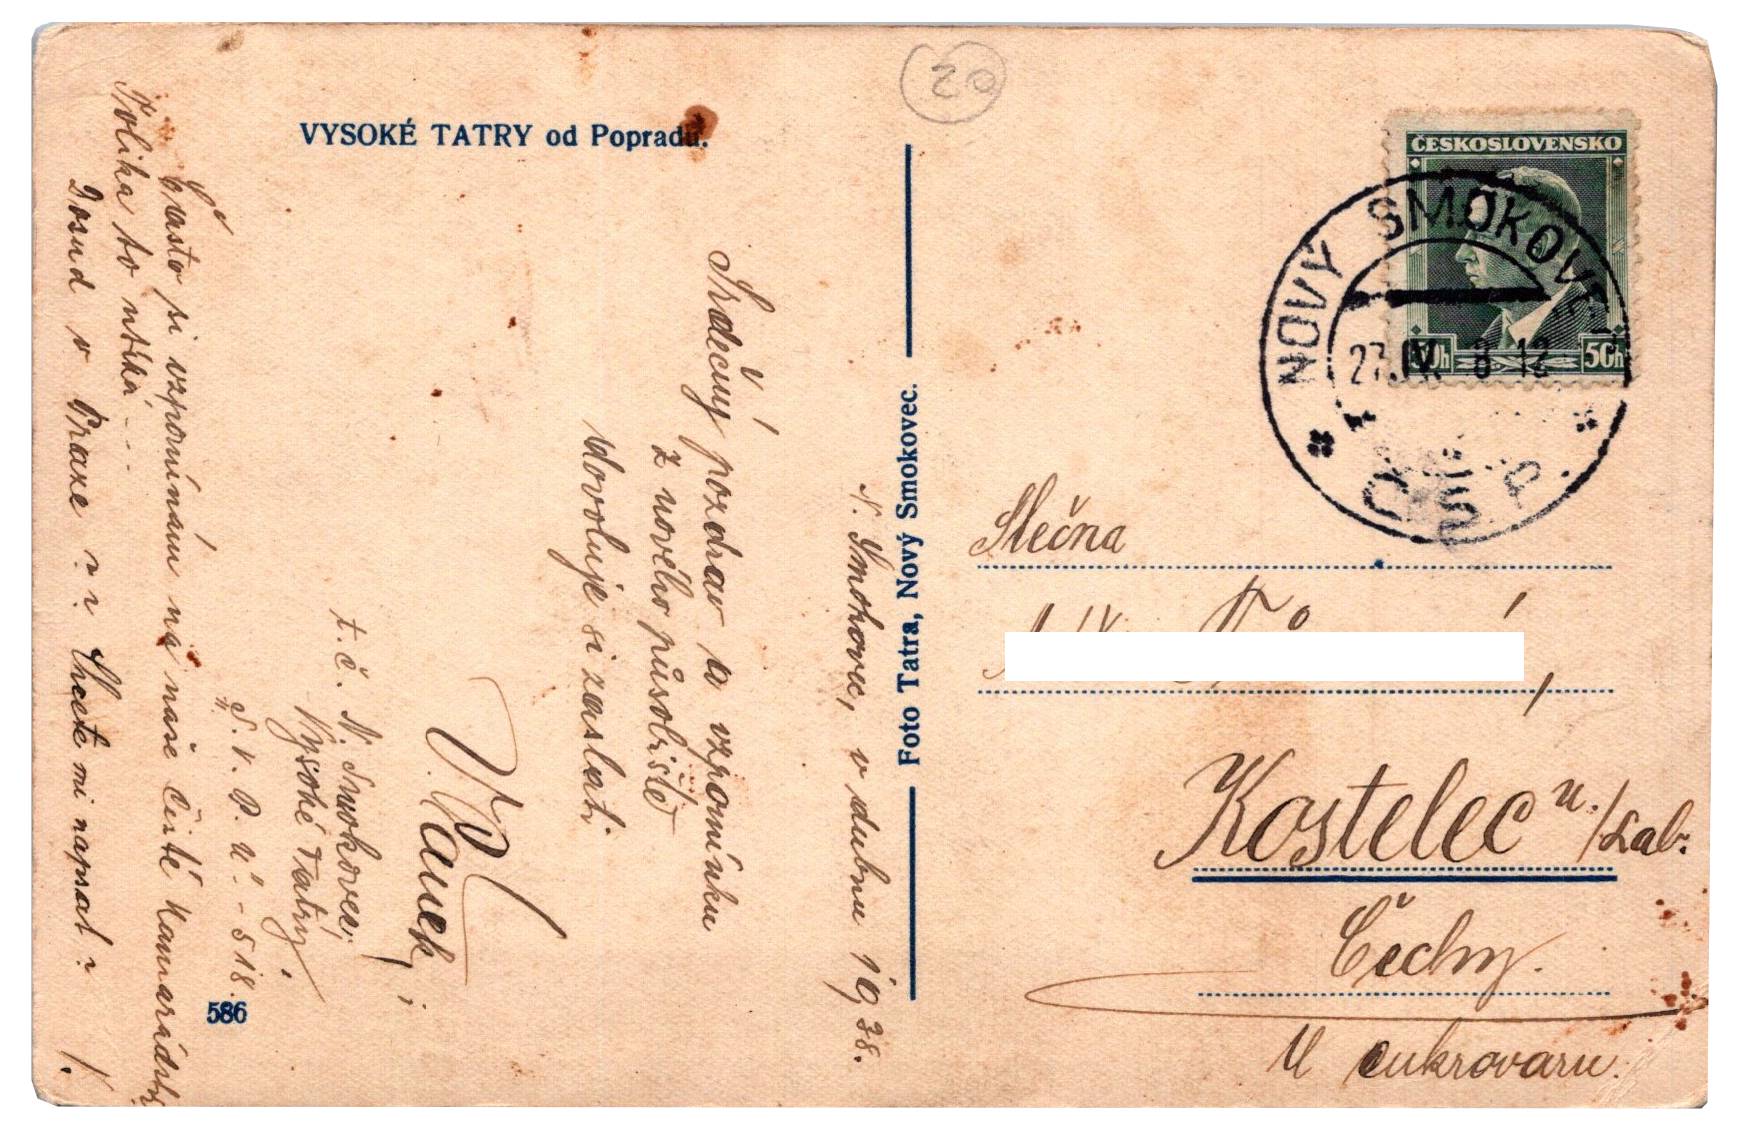 20
VYSOKÉ TATRY od Popradu.
ČESKOSLOVENSKO
50h 50h
NOVÝ SMOKOVEC
27.IV. 8-12
ČSP.
Foto Tatra, Nový Smokovec.
586
N. Smokovec, v dubnu 1938.
Srdečný pozdrav a vzpomínku
z nového působiště
dovoluje si zaslati
V. Vaněk,
t. č. N. Smokovec,
Vysoké Tatry.
"S. V. P. Ú." - 518.
Často si vzpomínám na naše čisté kamarádství
Kolika to utíká - - -
Dosud v Praze ? ? Chcete mi napsat ?
V.
Slečna
Kostelec n./Lab.
Čechy.
U cukrovaru.